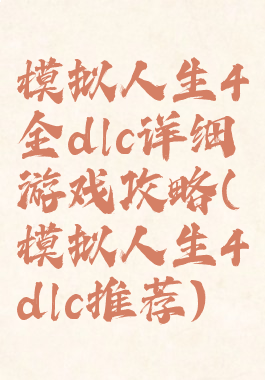 模拟人生4
全dlc详细
游戏攻略(
模拟人生4
dlc推荐)